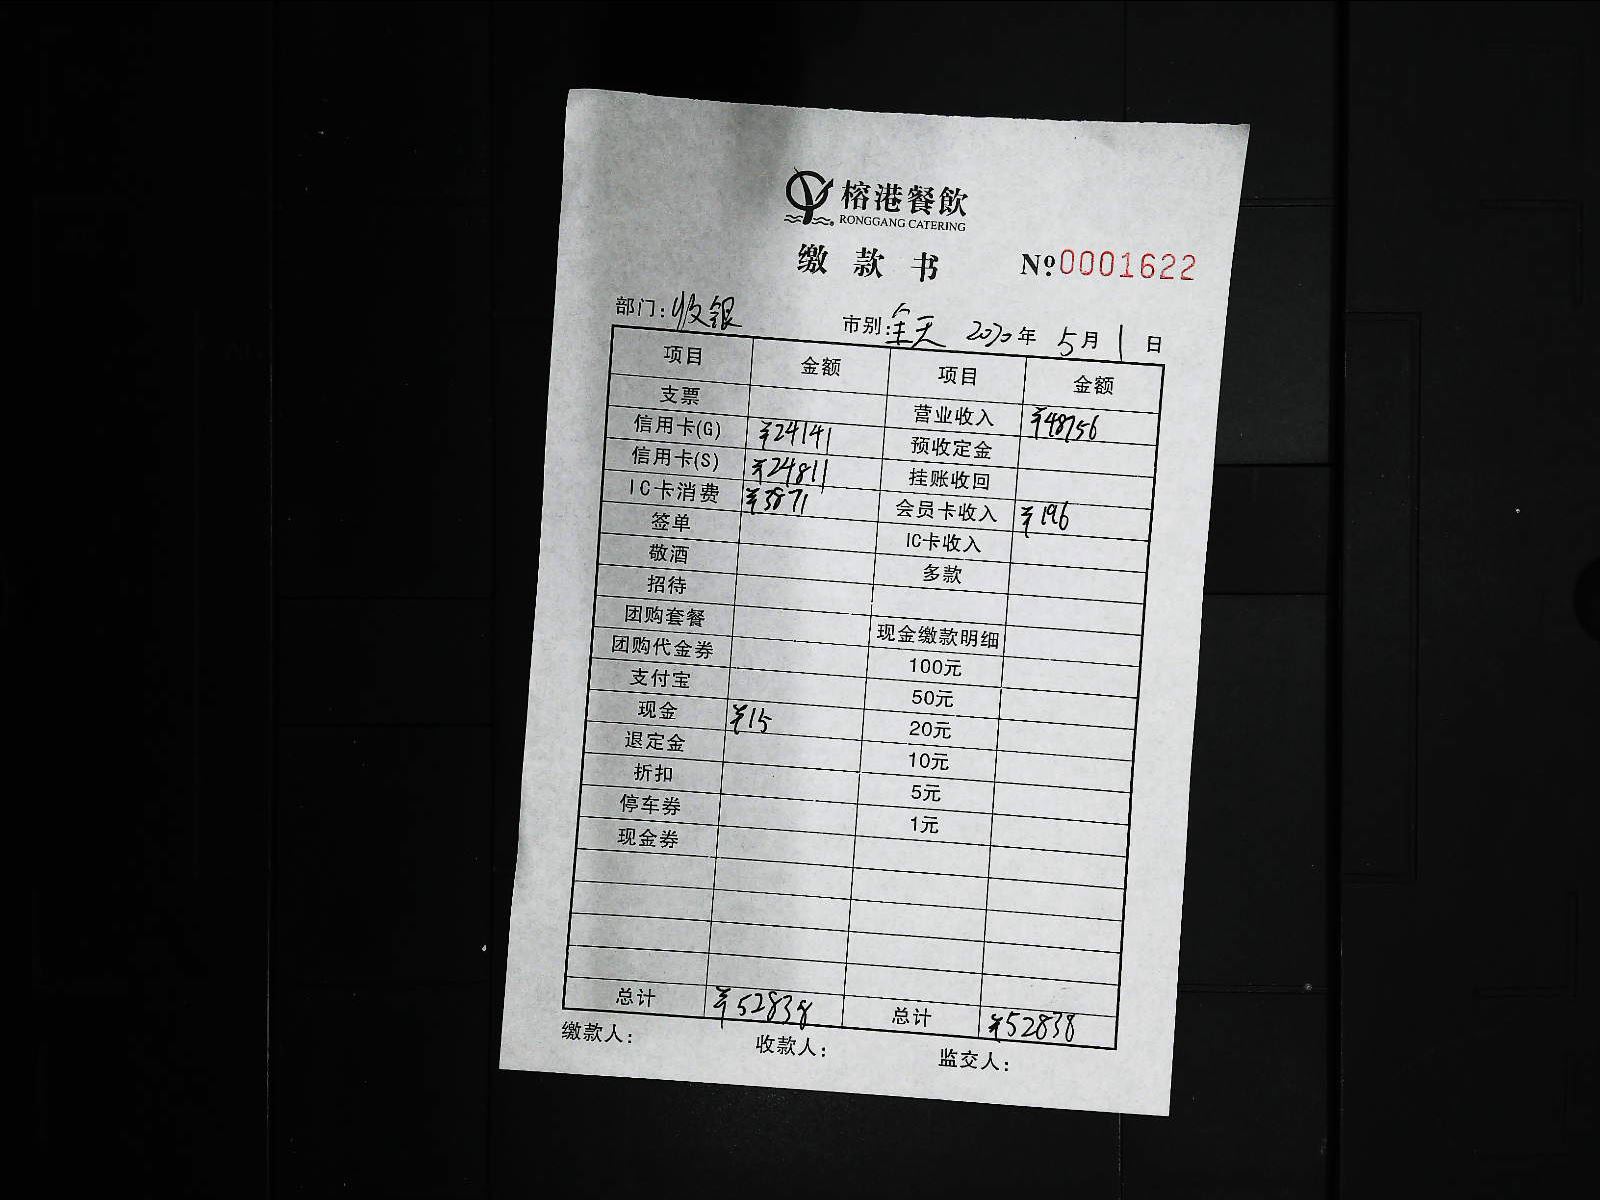 榕港餐飲
RONGGANG CATERING
缴款书 №0001622
部门:收银 市别:全天 2020年5月1日
项目 金额 项目 金额
支票 营业收入 ¥48756
信用卡(G) ¥24141 预收定金
信用卡(S) ¥24811 挂账收回
IC卡消费 ¥3871 会员卡收入 ¥196
签单 IC卡收入
敬酒 多款
招待
团购套餐 现金缴款明细
团购代金券 100元
支付宝 50元
现金 ¥15 20元
退定金 10元
折扣 5元
停车券 1元
现金券
总计 ¥52838 总计 ¥52838
缴款人: 收款人: 监交人: